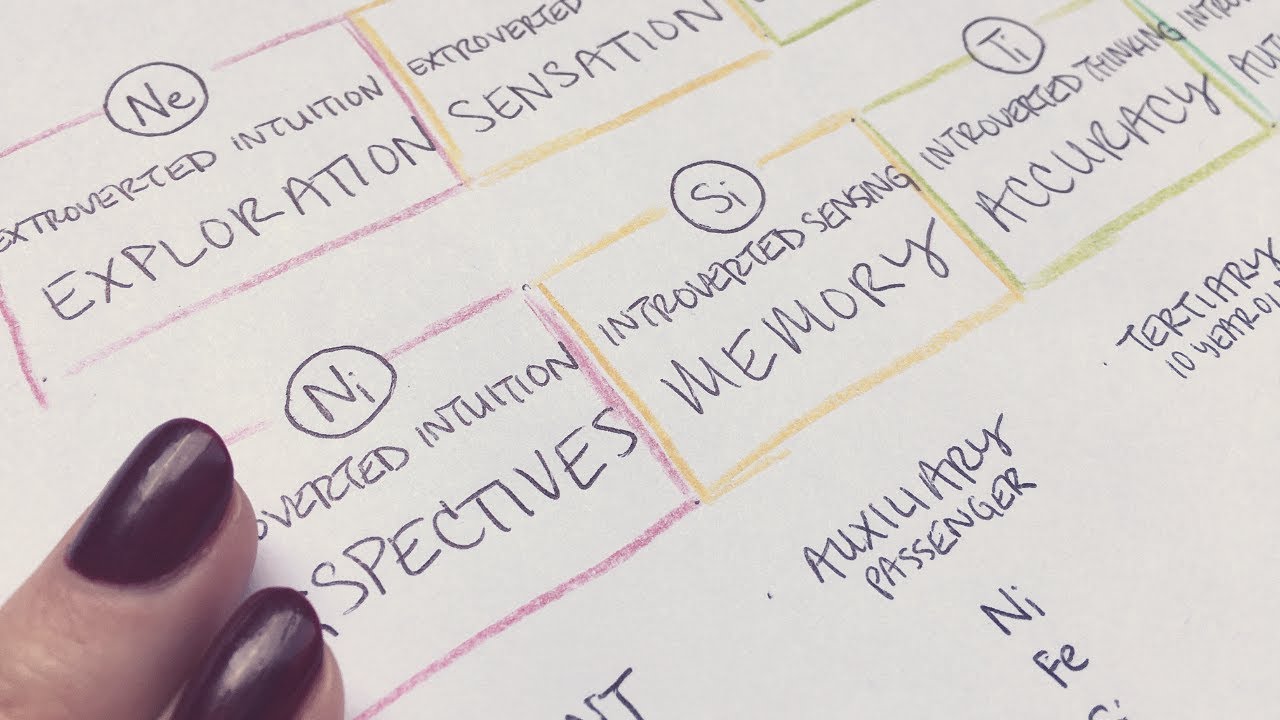 Ne
EXTROVERTED INTUITION
EXPLORATION
EXTROVERTED
SENSATION
Ni
OVERTED INTUITION
SPECTIVES
Si
INTROVERTED SENSING
MEMORY
Ti
INTROVERTED THINKING
ACCURACY
INTRO
AUT
TERTIARY
10 YEAR OL
AUXILIARY
PASSENGER
Ni
Fe
NT